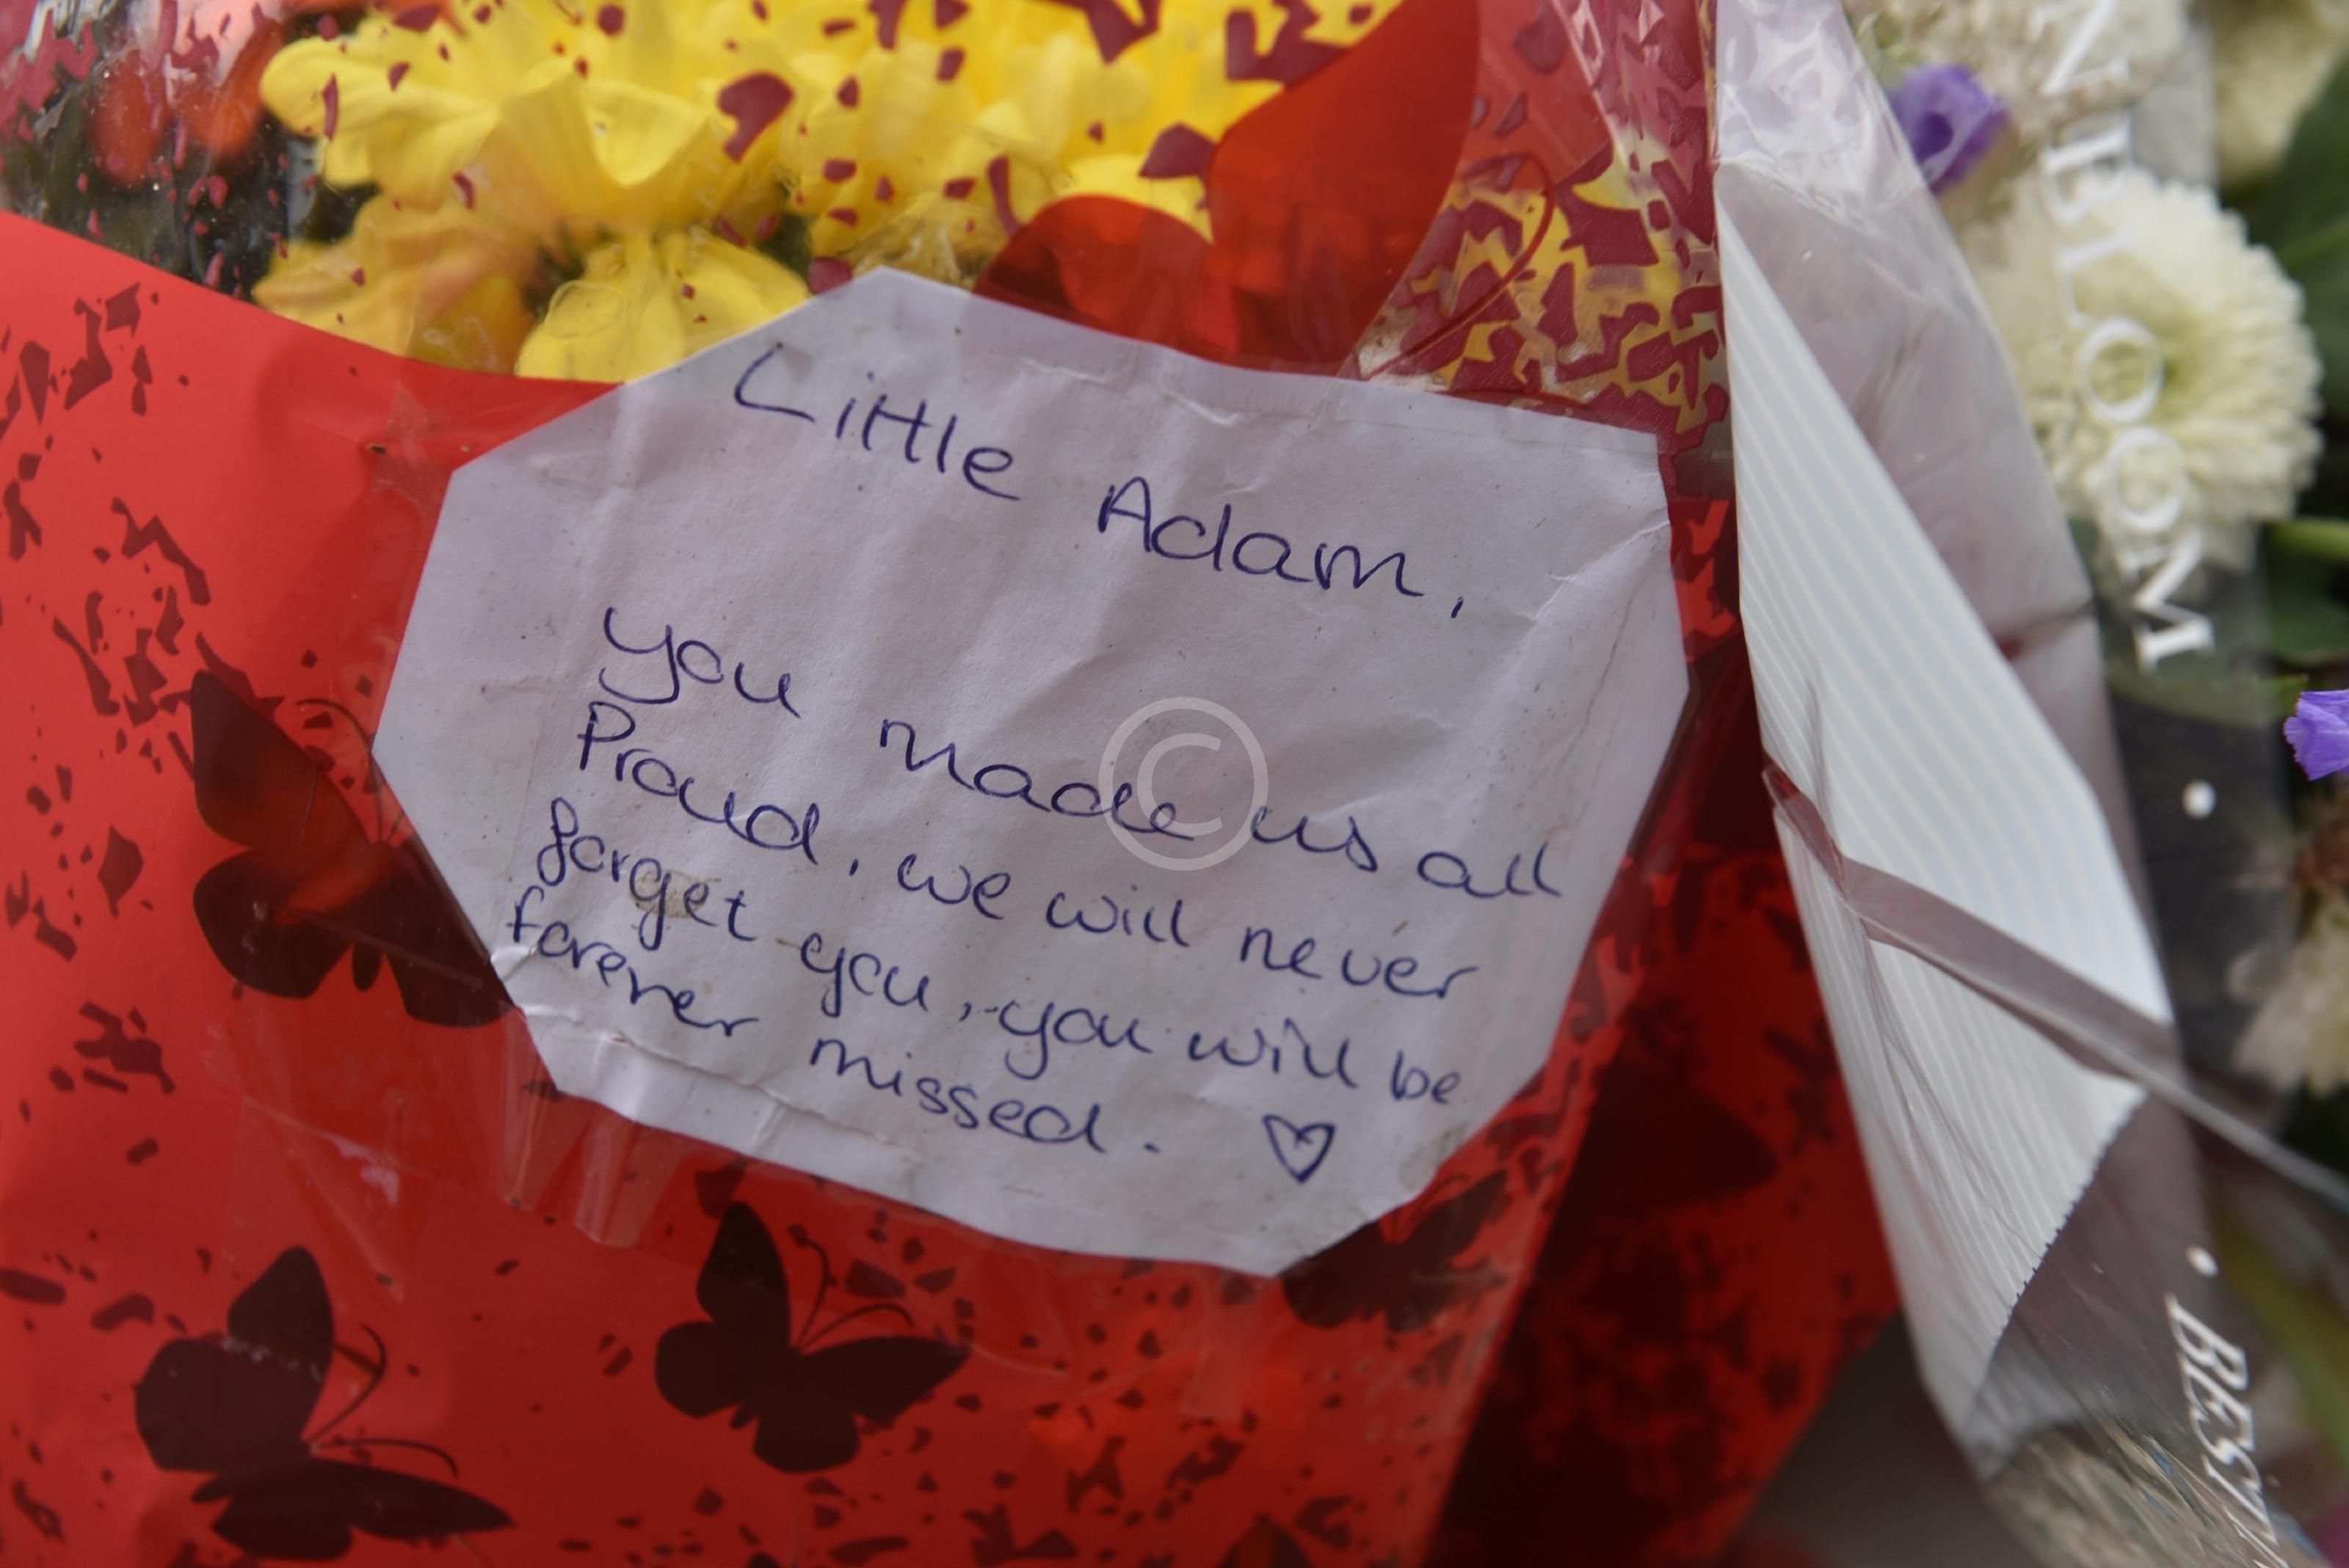 Little Adam,
you made us all
Proud, we will never
forget you, you will be
forever missed. ♡
©
BEST